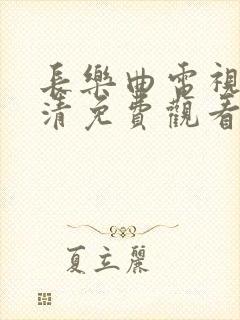 長樂曲電視
清免費觀看
夏立麗